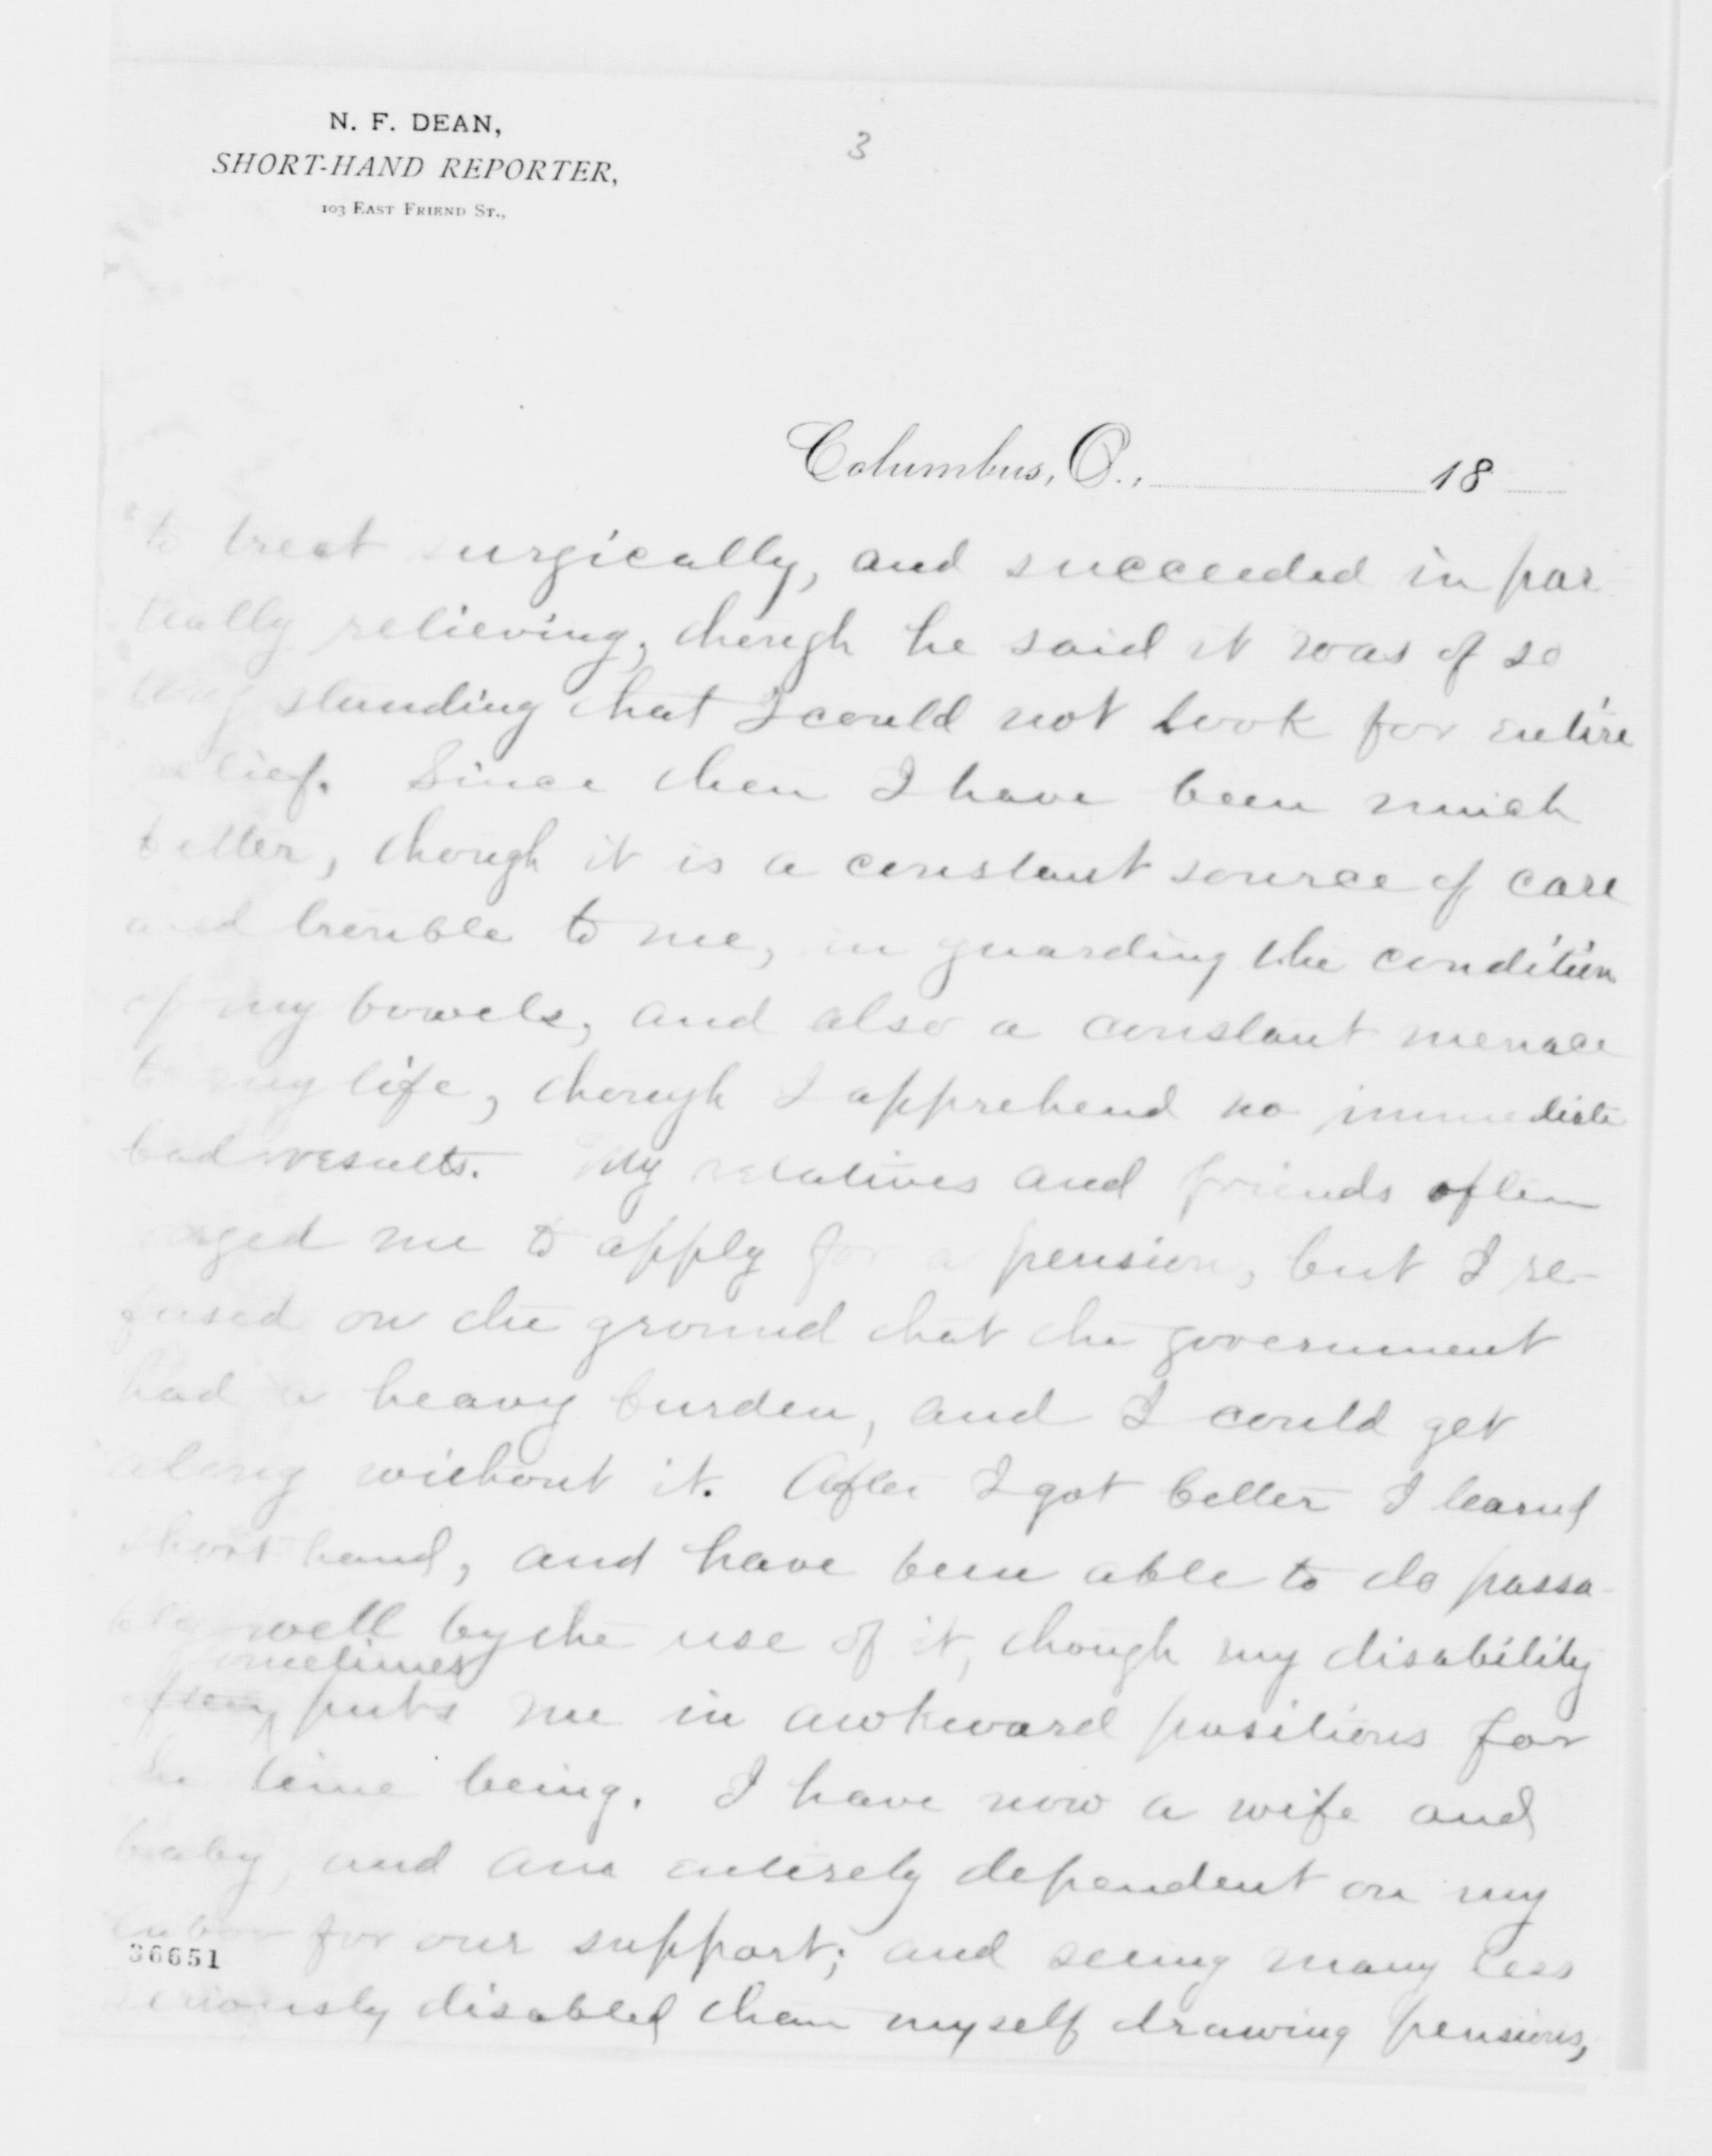 N. F. DEAN,
SHORT-HAND REPORTER,
103 EAST FRIEND ST.,
3
Columbus, O., 18
to treat surgically, and succeeded in par
tially relieving, though he said it was of so
long standing that I could not look for entire
relief. Since then I have been much
better, though it is a constant source of care
and trouble to me, in guarding the condition
of my bowels, and also a constant menace
to my life, though I apprehend no immediate
bad results. My relatives and friends often
urged me to apply for a pension, but I re-
fused on the ground that the government
had a heavy burden, and I could get
along without it. After I got better I learned
short hand, and have been able to do passa-
bly well by the use of it, though my disability
sometimes
often puts me in awkward positions for
the time being. I have now a wife and
baby, and am entirely dependent on my
labor for our support; and seeing many less
36651
seriously disabled than myself drawing pensions,